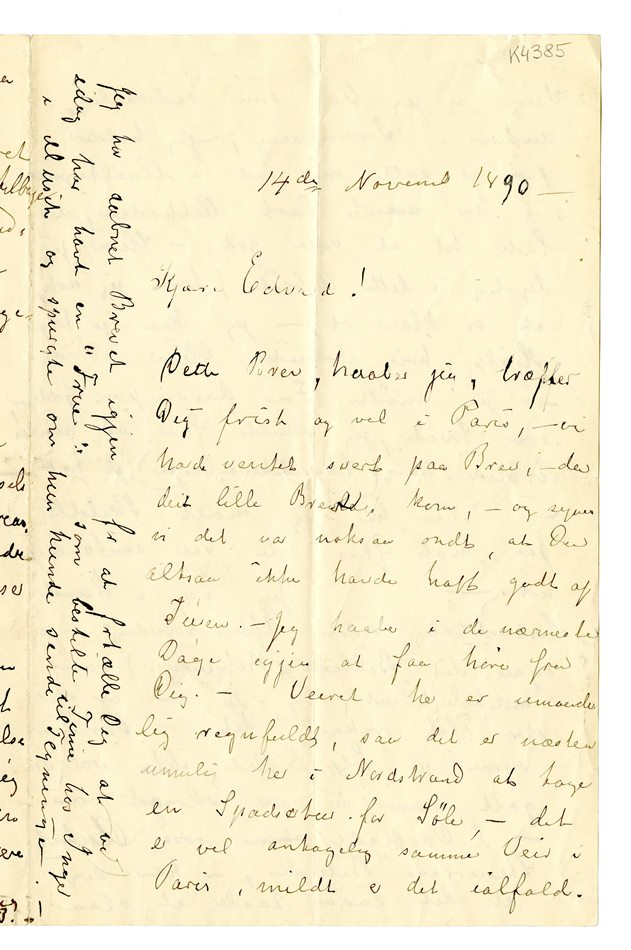 K4385
14de Novemb 1890 —
Kjære Edvard!
Dette Brev, haaber jeg, træffer
Dig frisk og vel i Paris, — vi
havde ventet svært paa Brev, — da
dit lille Brev, kom, — og synes
vi det var noksaa ondt, at Du
altsaa ikke havde haft godt af
Turen. — Jeg haaber i de nærmeste
Dage igjen at faa høre fra
Dig. — Veiret her er umaade
lig regnfuldt, saa det er næsten
umulig her i Nordstrand at tage
en Spadsertur for Søle, — det
er vel antagelig samme Veir i
Paris, mildt er det ialfald.
Jeg har aabnet Brevet igjen for at fortælle Dig at vi
idag har havt en "Frue" som bestilte Time hos Inger
i Musik og spurgte om hun kunde sende til Tegninger. —